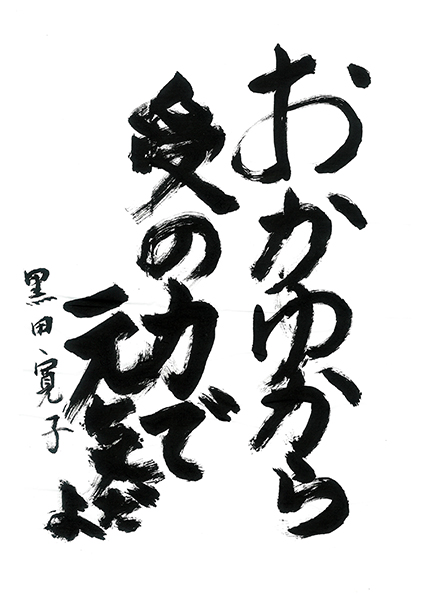 おかゆから
愛の力で
元気だよ
黒田寛子